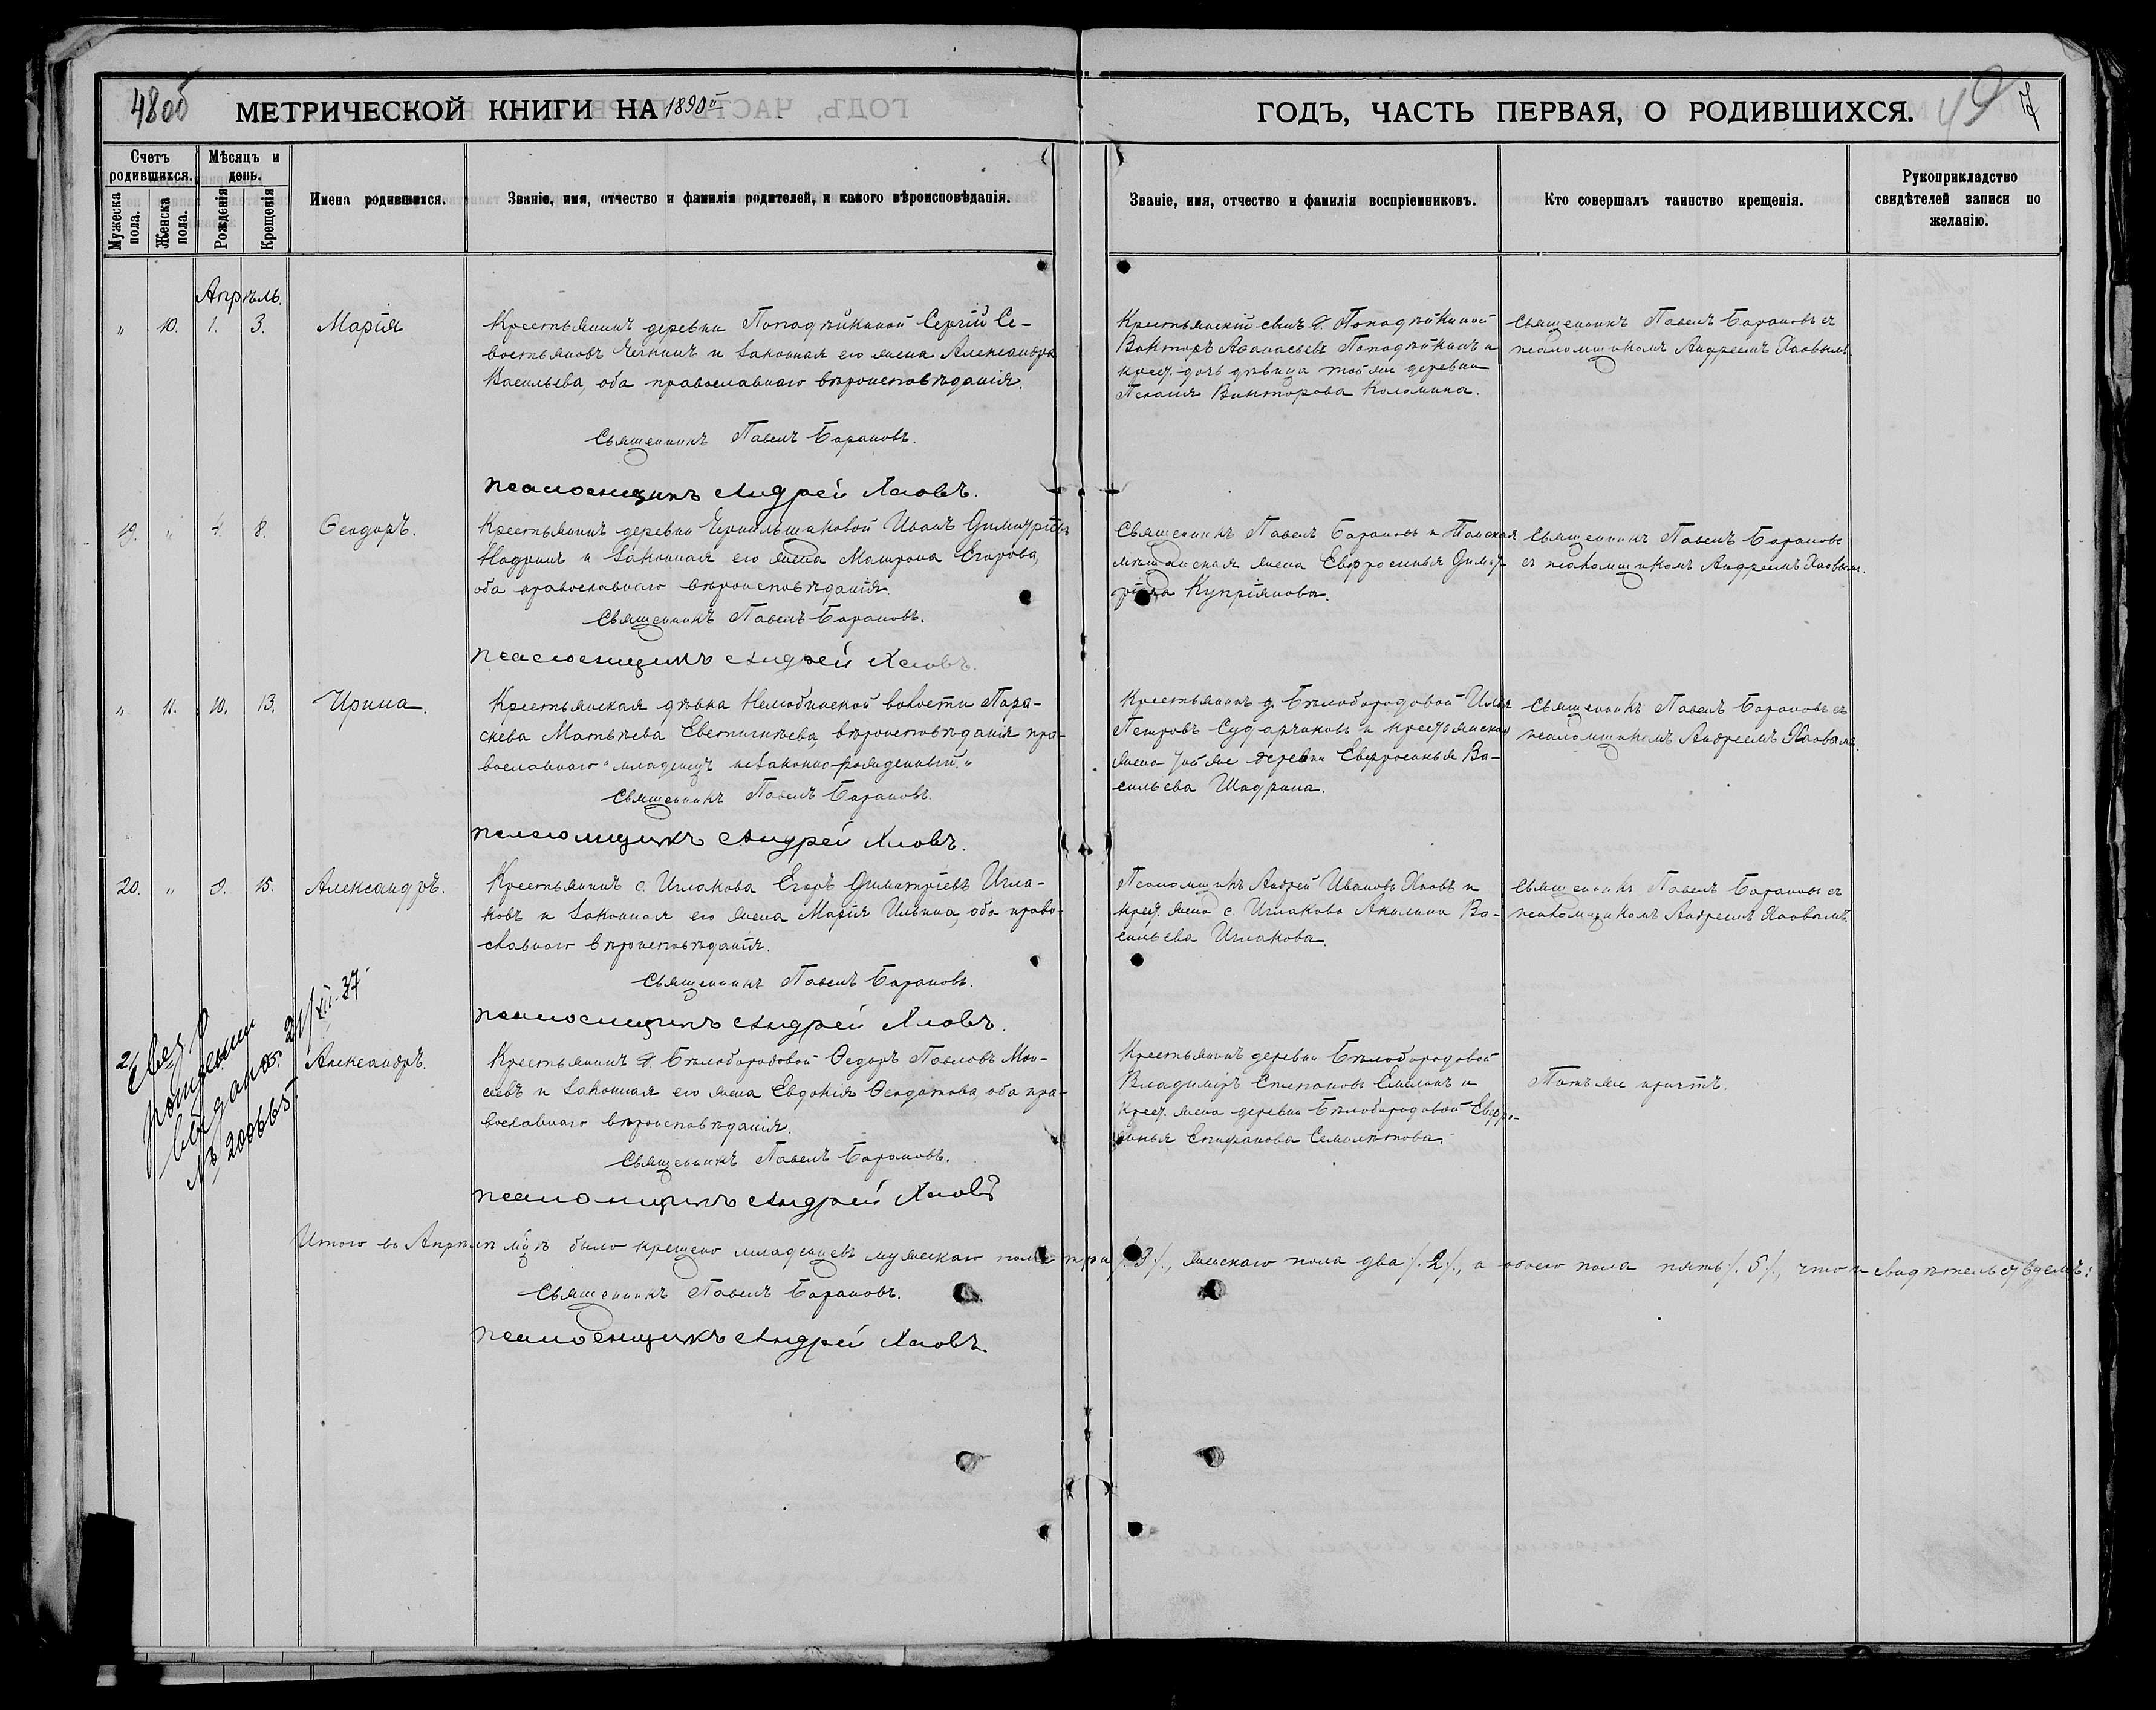 48об
МЕТРИЧЕСКОЙ КНИГИ НА 1890й
ГОДЪ, ЧАСТЬ ПЕРВАЯ, О РОДИВШИХСЯ.
49
7
Счетъ родившихся.
Мѣсяцъ и день.
Мужеска пола.
Женска пола.
Рожденія
Крещенія
Имена родившихся.
Званіе, имя, отчество и фамилія родителей, и какого вѣроисповѣданія.
Званіе, имя, отчество и фамилія воспріемниковъ.
Кто совершалъ таинство крещенія.
Рукоприкладство свидѣтелей записи по желанію.
Апрѣль.
" 10. 1. 3. Марія
Крестьянинъ деревни Попадѣйкиной Сергій Се-
востьяновъ и законная его жена Александра
Васильева, оба православнаго вѣроисповѣданія.
Священникъ Павелъ Барановъ.
Псаломщикъ Андрей Хловъ.
Крестьянскій сынъ д. Попадѣйкиной
Викторъ Аѳанасьевъ Попадѣйкинъ и
крест. дочь дѣвица той же деревни
Викторова Коломина.
Священникъ Павелъ Барановъ съ
псаломщикомъ Андреемъ Хловымъ.
19. " 4. 8. Ѳеодоръ.
Крестьянинъ деревни Иванъ Димитріевъ
и законная его жена Матрона Егорова,
оба православнаго вѣроисповѣданія.
Священникъ Павелъ Барановъ.
Псаломщикъ Андрей Хловъ.
Священникъ Павелъ Барановъ и Томская
мѣщанская жена Евфросинья Димит-
ріева Купріянова.
Священникъ Павелъ Барановъ
съ псаломщикомъ Андреемъ Хловым.
" 11. 10. 13. Ирина.
Крестьянская дѣвка Нелюбинской волости Пара-
скева Матвѣева Евстигнѣева, вѣроисповѣданія пра-
вославнаго "младенецъ незаконно-рожденный."
Священникъ Павелъ Барановъ.
Псаломщикъ Андрей Хловъ.
Крестьянинъ д. Бѣлобородовой Илья
Петровъ Сударчиковъ и крестьянская
жена той же деревни Евфросинья Ва-
сильева Шадрина.
Священникъ Павелъ Барановъ съ
псаломщикомъ Андреемъ Хловымъ.
20. " 8. 15. Александръ.
Крестьянинъ с. Иглакова Егоръ Димитріевъ Игла-
ковъ и законная его жена Марія Ильина, оба право-
славнаго вѣроисповѣданія.
Священникъ Павелъ Барановъ.
Псаломщикъ Андрей Хловъ.
Псаломщикъ Андрей Ивановъ Хловъ и
крест. жена с. Иглакова Акилина Ва-
сильева Иглакова.
Священникъ Павелъ Барановъ съ
псаломщикомъ Андреемъ Хловымъ.
рождении
выдано 21/XII-37
№ 200665
21 Александръ.
Крестьянинъ д. Бѣлобородовой Ѳедоръ Павловъ Мои-
сеевъ и законная его жена Евдокія Ѳеодотова оба пра-
вославнаго вѣроисповѣданія.
Священникъ Павелъ Барановъ.
Псаломщикъ Андрей Хловъ
Крестьянинъ деревни Бѣлобородовой
Владиміръ Степановъ и
крест. жена деревни Бѣлобородовой Евфро-
синья Епифанова Семилѣтова.
Тотъ же причтъ.
Итого въ Апрѣлѣ м-цѣ было крещено младенцевъ мужескаго пола три /. 3 /., женскаго пола два /. 2 /., а обоего пола пять /. 5 /., что и свидѣтельствуемъ:
Священникъ Павелъ Барановъ.
Псаломщикъ Андрей Хловъ.